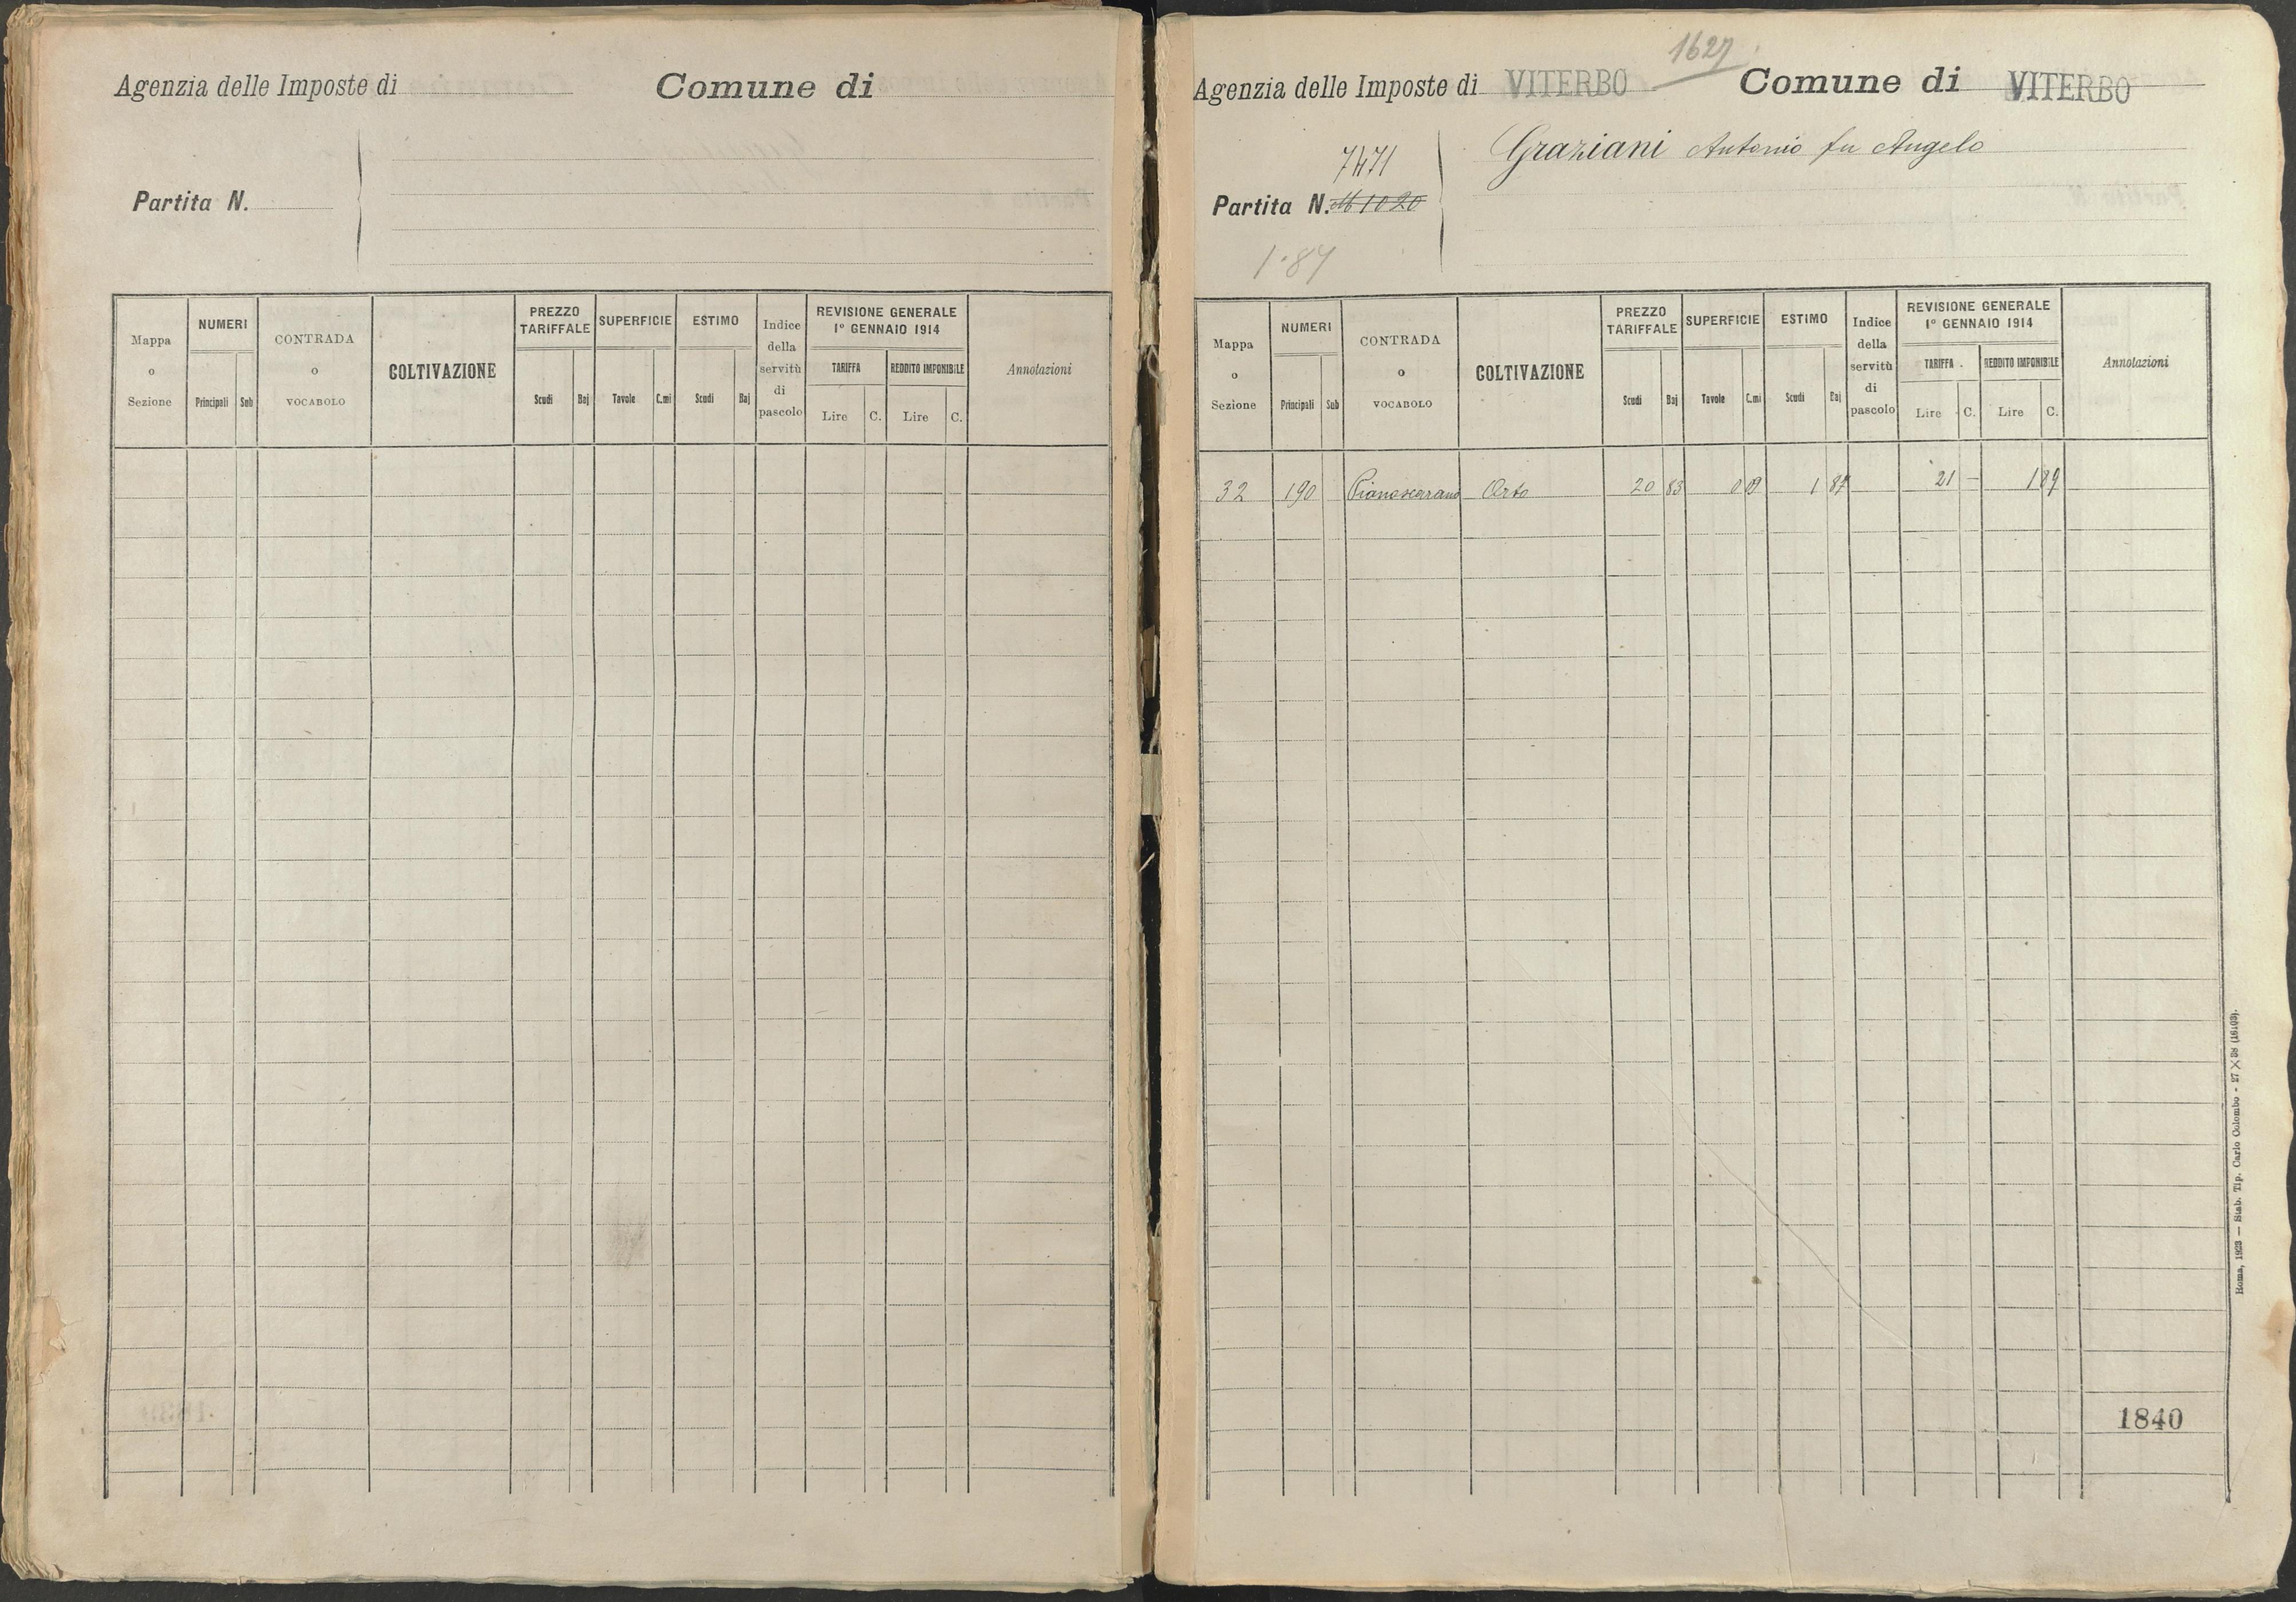 Agenzia delle Imposte di Comune di
Partita N.
Mappa o Sezione
NUMERI
Principali Sub
CONTRADA o VOCABOLO
COLTIVAZIONE
PREZZO TARIFFALE
Scudi Baj
SUPERFICIE
Tavole C.mi
ESTIMO
Scudi Baj
Indice della servitù di pascolo
REVISIONE GENERALE
1° GENNAIO 1914
TARIFFA REDDITO IMPONIBILE
Lire C. Lire C.
Annotazioni
1627
Agenzia delle Imposte di VITERBO Comune di VITERBO
Graziani Antonio fu Angelo
7471
Partita N. M1020
1.87
Mappa o Sezione
NUMERI
Principali Sub
CONTRADA o VOCABOLO
COLTIVAZIONE
PREZZO TARIFFALE
Scudi Baj
SUPERFICIE
Tavole C.mi
ESTIMO
Scudi Baj
Indice della servitù di pascolo
REVISIONE GENERALE
1° GENNAIO 1914
TARIFFA REDDITO IMPONIBILE
Lire C. Lire C.
Annotazioni
32 190 Pianoscarano Orto 20 83 0 09 1 87 21 — 1 89
1840
Roma, 1923 — Stab. Tip. Carlo Colombo - 27 X 38 (16103).